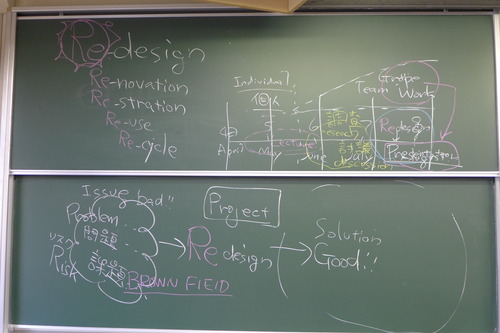 Re-design
Re-novation
Re-stration
Re-use
Re-cycle
Individual
個人
Groupe
Team Work
April
May
Lecture
June
調査
Redesign
Presentation
Issue bad!!
Project
Problem
問題
リスク
Risk
Re design
BROWN FIELD
Solution
Good!!